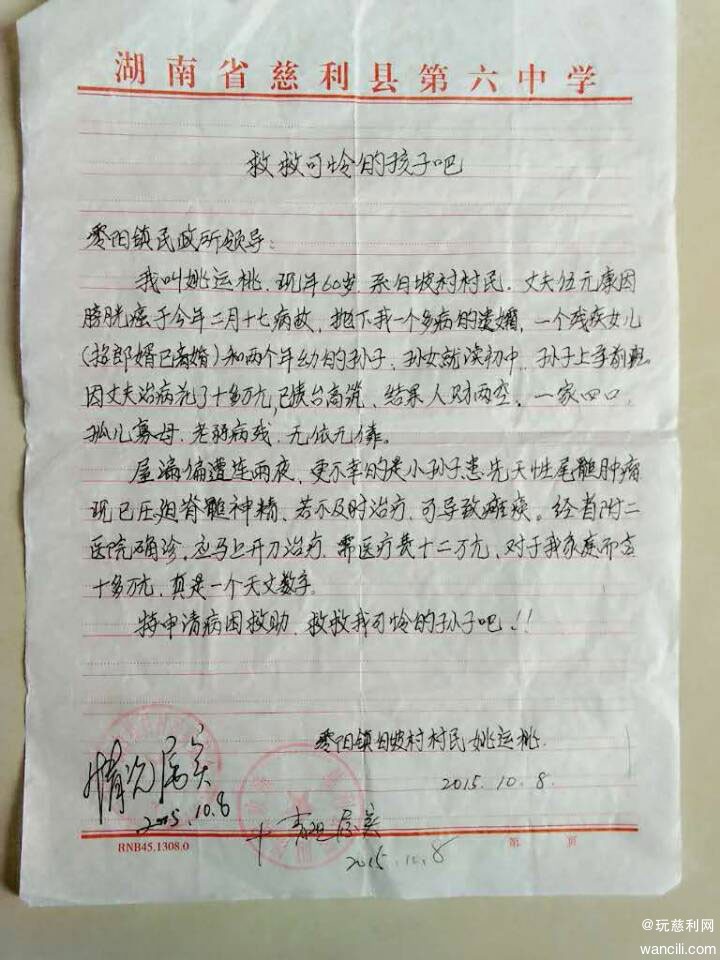 湖南省慈利县第六中学
救救可怜的孩子吧
零阳镇民政所领导:
我叫姚运桃.现年60岁.系白坡村村民.丈夫伍元康因
膀胱癌于今年二月十七病故,抛下我一个多病的遗孀,一个残疾女儿
(招郎婿已离婚)和两个年幼的孙子,孙女就读初中,孙子上学前班.
因丈夫治病花了十多万元,已债台高筑、结果人财两空、一家四口,
孤儿寡母.老弱病残.无依无靠。
屋漏偏遭连雨夜,更不幸的是小孙子患先天性尾髓肿瘤
现已压迫脊髓神精、若不及时治疗.可导致瘫痪。经省附二
医院确诊,应马上开刀治疗.需医疗费十二万元,对于我家庭而言
十多万元,真是一个天文数字.
特申请病困救助.救救我可怜的孙子吧!!
零阳镇白坡村村民姚运桃.
2015.10.8.
情况属实
2015.10.8
属实
2015.10.8
RNB45.1308.0
第 页
@玩慈利网
wancili.com